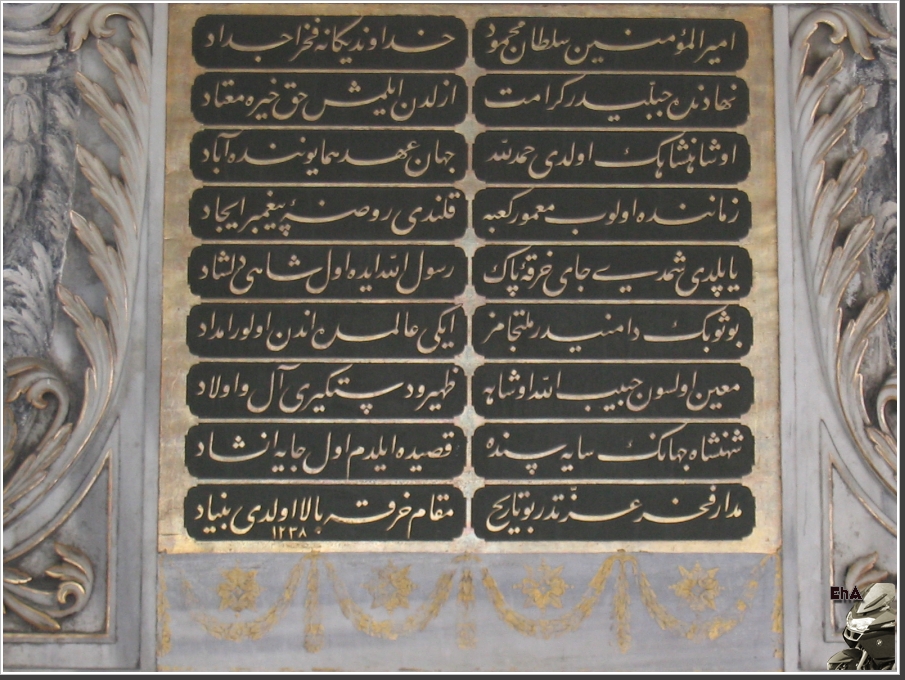 امیرالمؤمنین سلطان محمود خداوند یکانه فخر اجداد
نهادنده جبلیدر کرامت ازلدن ایلمش حق خیره معتاد
او شاهنشاهك اولدی حمدلله جهان عهد همایوننده آباد
زماننده اولوب معمور کعبه قلندی روضۀ پیغمبر ایجاد
یاپلدی شمدی جای خرقۀ پاك رسول الله ایده اول شاهی دلشاد
بو ثوبك دامنیدر ملتجامز ایکی عالمده اندن اولور امداد
معین اولسون حبیب الله او شاهه ظهیر و دستکیری آل و اولاد
شهنشاه جهانك سایه سنده قصیده ایلدم اول جایه انشاد
مدار فخر عزتدر بو تاریخ مقام خرقه بالا اولدی بنیاد
۱۲۳۸
EhA